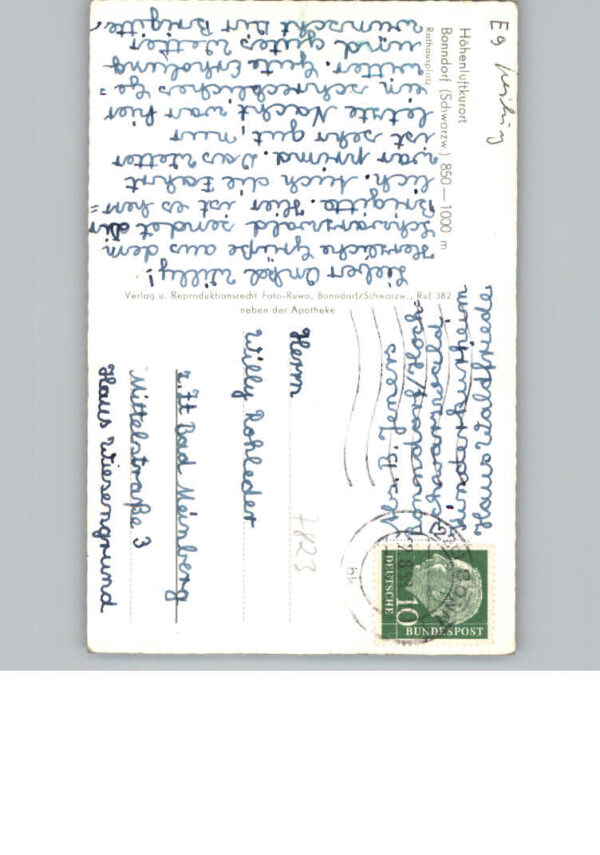 Höhenluftkurort
Bonndorf (Schwarzw.) 850—1000 m
Rathausplatz
Lieber Onkel Willy!
Herzliche Grüße aus dem
Schwarzwald sendet dir
Brigitte. Hier ist es herr=
lich. Auch die Fahrt
war prima. Das Wetter
ist sehr gut, nur
letzte Nacht war hier
ein schreckliches Ge=
witter. Gute Erholung
und gutes Wetter
wünscht Dir Brigitte.
Verlag u. Reproduktionsrecht Foto-Ruwa, Bonndorf/Schwarzw., Ruf 382
neben der Apotheke
Abs. B.
Kinderkurheim
Haus Waldfriede
Herrn
Willy Rohleder
z. Zt Bad Meinberg
Mittelstraße 3
Haus Wiesengrund
7823
10
DEUTSCHE
BUNDESPOST